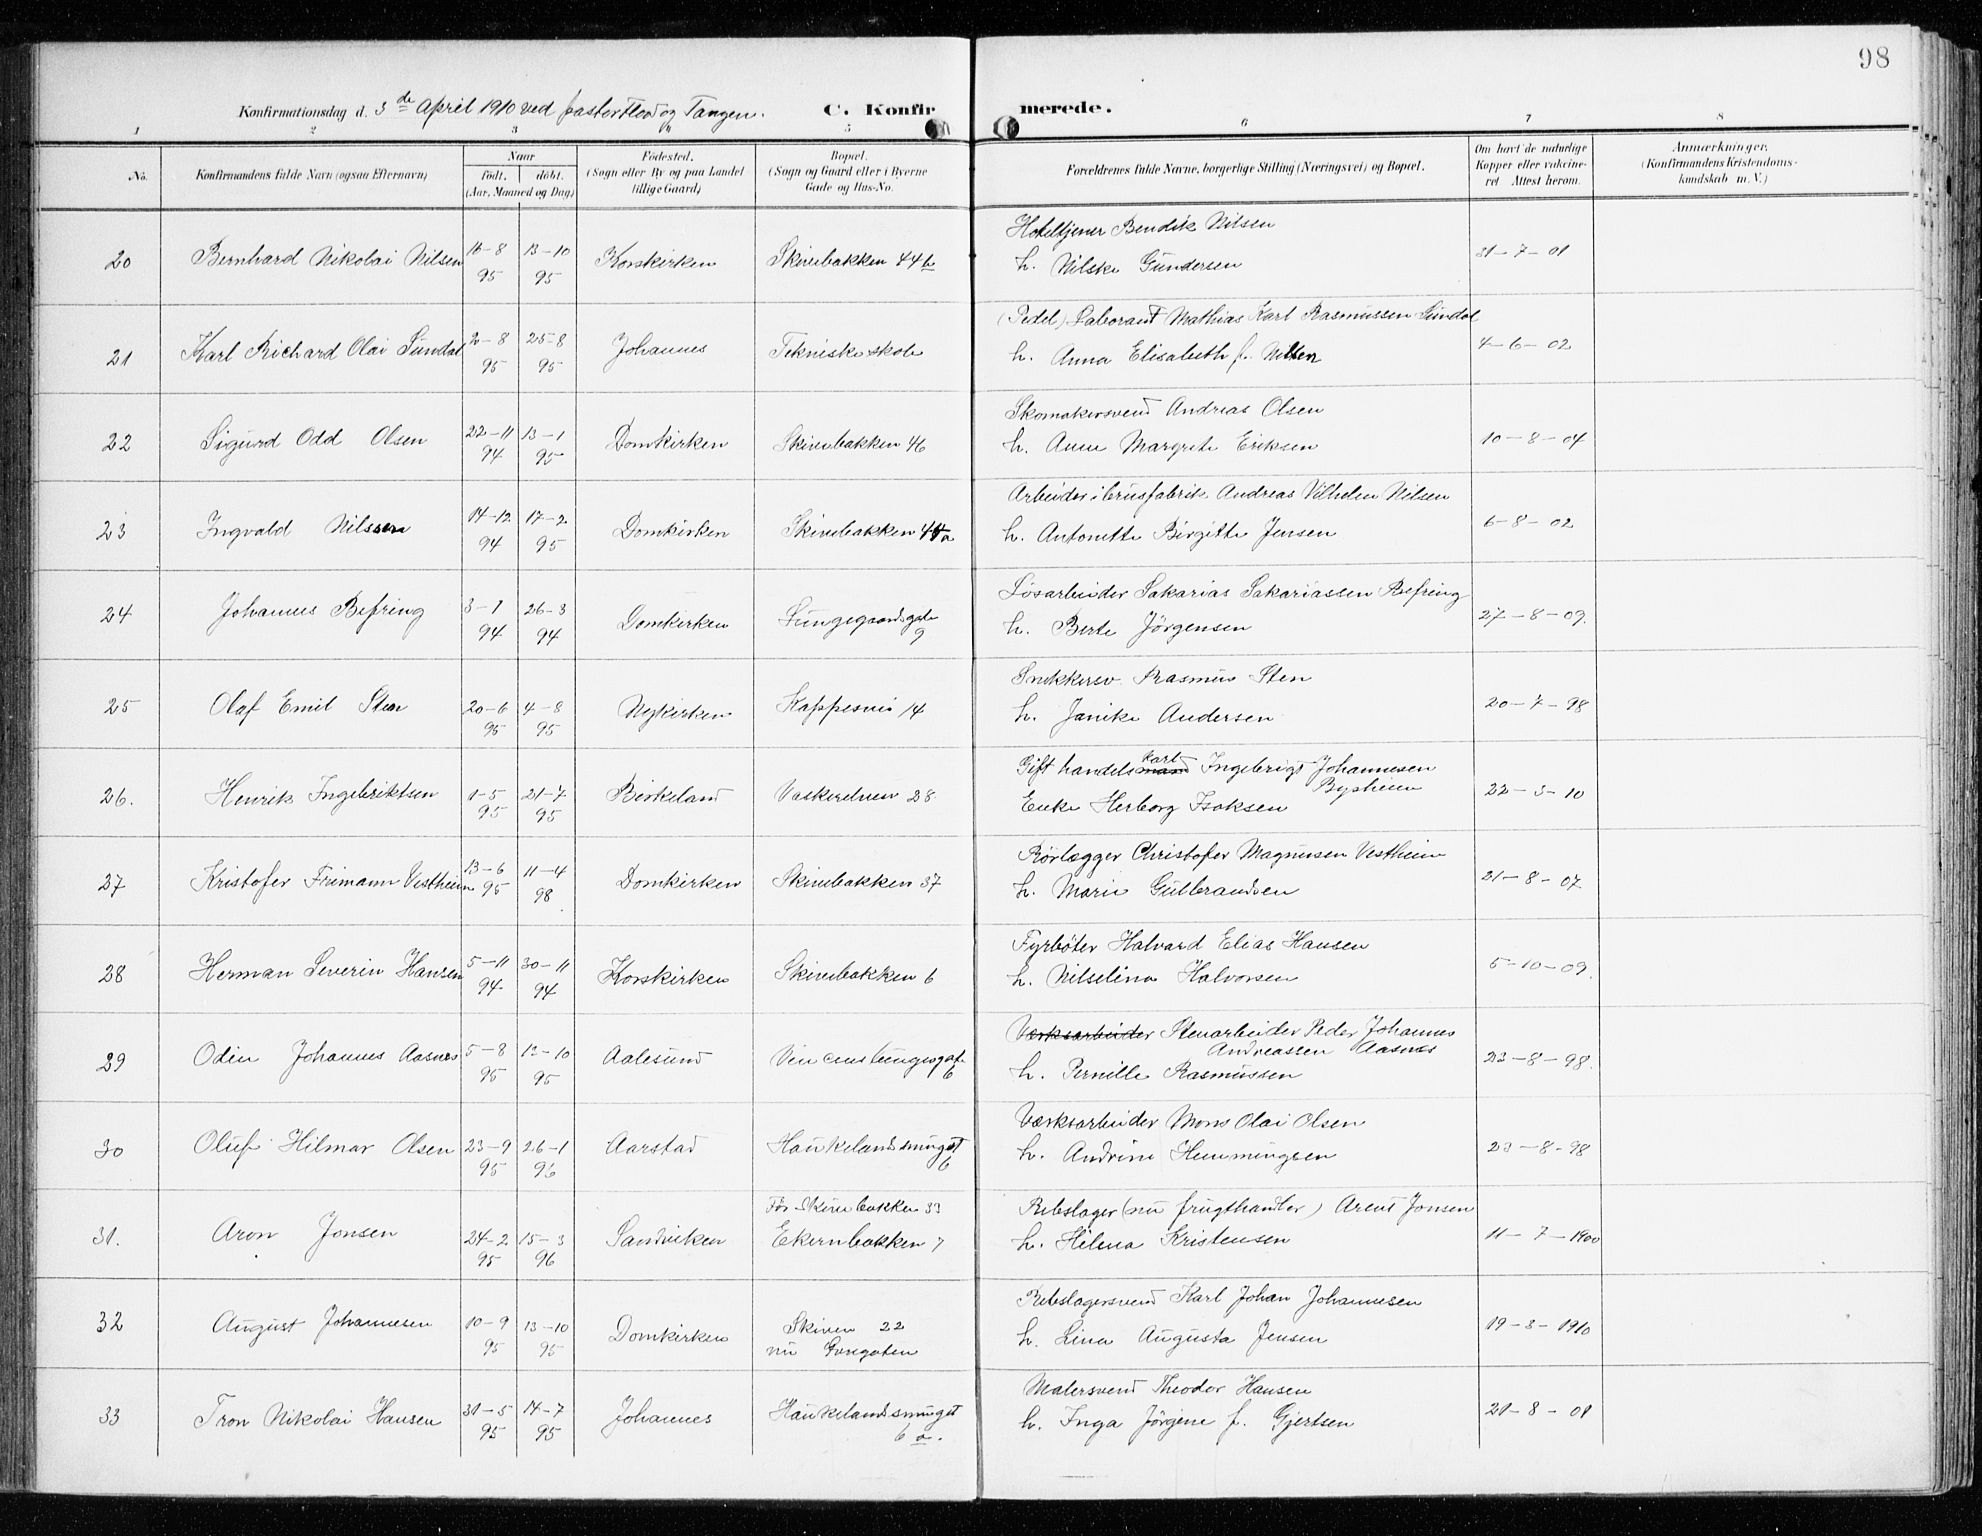 98
Konfirmationsdag d. 3de April 1910 ved pastor Flood og Tangen. C. Konfirmerede.
1 2 3 4 5 6 7 8
No. Konfirmandens fulde Navn (ogsaa Efternavn) Naar født, døbt. (Aar, Maaned og Dag) Fødested. (Sogn eller By og paa Landet tillige Gaard) Bopæl. (Sogn og Gaard eller i Byerne Gade og Hus-No. Forældrenes fulde Navne, borgerlige Stilling (Næringsvei) og Bopæl. Om havt de naturlige Kopper eller vakcineret. Attest herom. Anmærkninger. (Konfirmandens Kristendomskundskab m. V.)
20 Bernhard Nikolai Nilsen 16-8 95 13-10 95 Korskirken Skivebakken 44b Hoteltjener Bendik Nilsen
h. Nilske Gundersen 31-7-01
21 Karl Richard Olai Sundal 2-8 95 25-8 95 Johannes Tekniske skole (Pedel) Laborant Mathias Karl Rasmussen Sundal
h. Anna Elisabeth f. Nilsen 4-6-02
22 Sigurd Odd Olsen 22-11 94 13-1 95 Domkirken Skivebakken 46 Skomakersvend Andreas Olsen
h. Anne Margrete Eriksen 10-8-04
23 Ingvald Nilssen 14-12 94 17-2 95 Domkirken Skivebakken 44a Arbeider i brusfabrik Andreas Vilhelm Nilsen
h. Antonette Birgitte Jensen 6-8-02
24 Johannes Befring 3-1 94 26-3 94 Domkirken Lungegaardsgate 9 Løsarbeider Sakarias Sakariassen Befring
h. Berte Jørgensen 27-8-09.
25 Olaf Emil Sten 20-6 95 4-8 95 Nykirken Kappesvei 14 Snekkersv. Rasmus Sten
h. Janike Andersen 20-7-98
26. Henrik Ingebriktsen 1-5 95 21-7 95 Birkeland Vaskerelven 28 Gift handelsmand karl Ingebrigt Johannesen Bysheim
Enke Herborg Isaksen 22-3-10
27 Kristofer Frimann Vestheim 13-6 95 11-4 98 Domkirken Skivebakken 37 Rørlægger Christofer Magnusen Vestheim
h. Marie Gulbrandsen 21-8-07.
28 Herman Severin Hansen 5-11 94 30-11 94 Korskirken Skivebakken 6 Fyrbøter Halvard Elias Hansen
h. Nilselina Halvorsen 5-10-09.
29 Odin Johannes Aasnes 5-8 95 13-10 95 Aalesund Vincens Lungesgate 6 Værksarbeider Stenarbeider Peder Johannes Andreassen Aasnes
h. Pernille Rasmussen 23-8-98.
30 Oluf Hilmar Olsen 23-9 95 26-1 96 Aarstad Haukelandsmuget 6 Værksarbeider Mons Olai Olsen
h. Andrine Hemmingsen 23-8-98
31. Aron Jonsen 24-2 95 15-3 96 Sandviken Før Skivebakken 33
Ekernbakken 7 Rebslager (nu frugthandler) Arent Jonsen
h. Helena Kristensen 11-7-1900
32 August Johannesen 10-9 95 13-10 95 Domkirken Skiven 22
nu Gongaten Rebslagersvend Karl Johan Johannesen
h. Lina Augusta Jensen 19-3-1910
33 Tron Nikolai Hansen 31-5 95 14-7 95 Johannes Haukelandsmuget 6a. Malersvend Theodor Hansen
h. Inga Jørgine f. Gjertsen 21-8-01